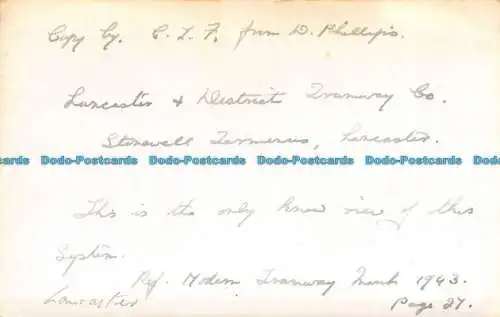 Copy by. C. L. F. from D. Phillips.
Lancaster & District Tramway Co.
Stonewell Terminus, Lancaster.
Dodo-Postcards Dodo-Postcards Dodo-Postcards Dodo-Postcards Dodo-Postcards
This is the only know view of this
System.
Ref. Modern Tramway March 1943.
Lancaster Page 27.